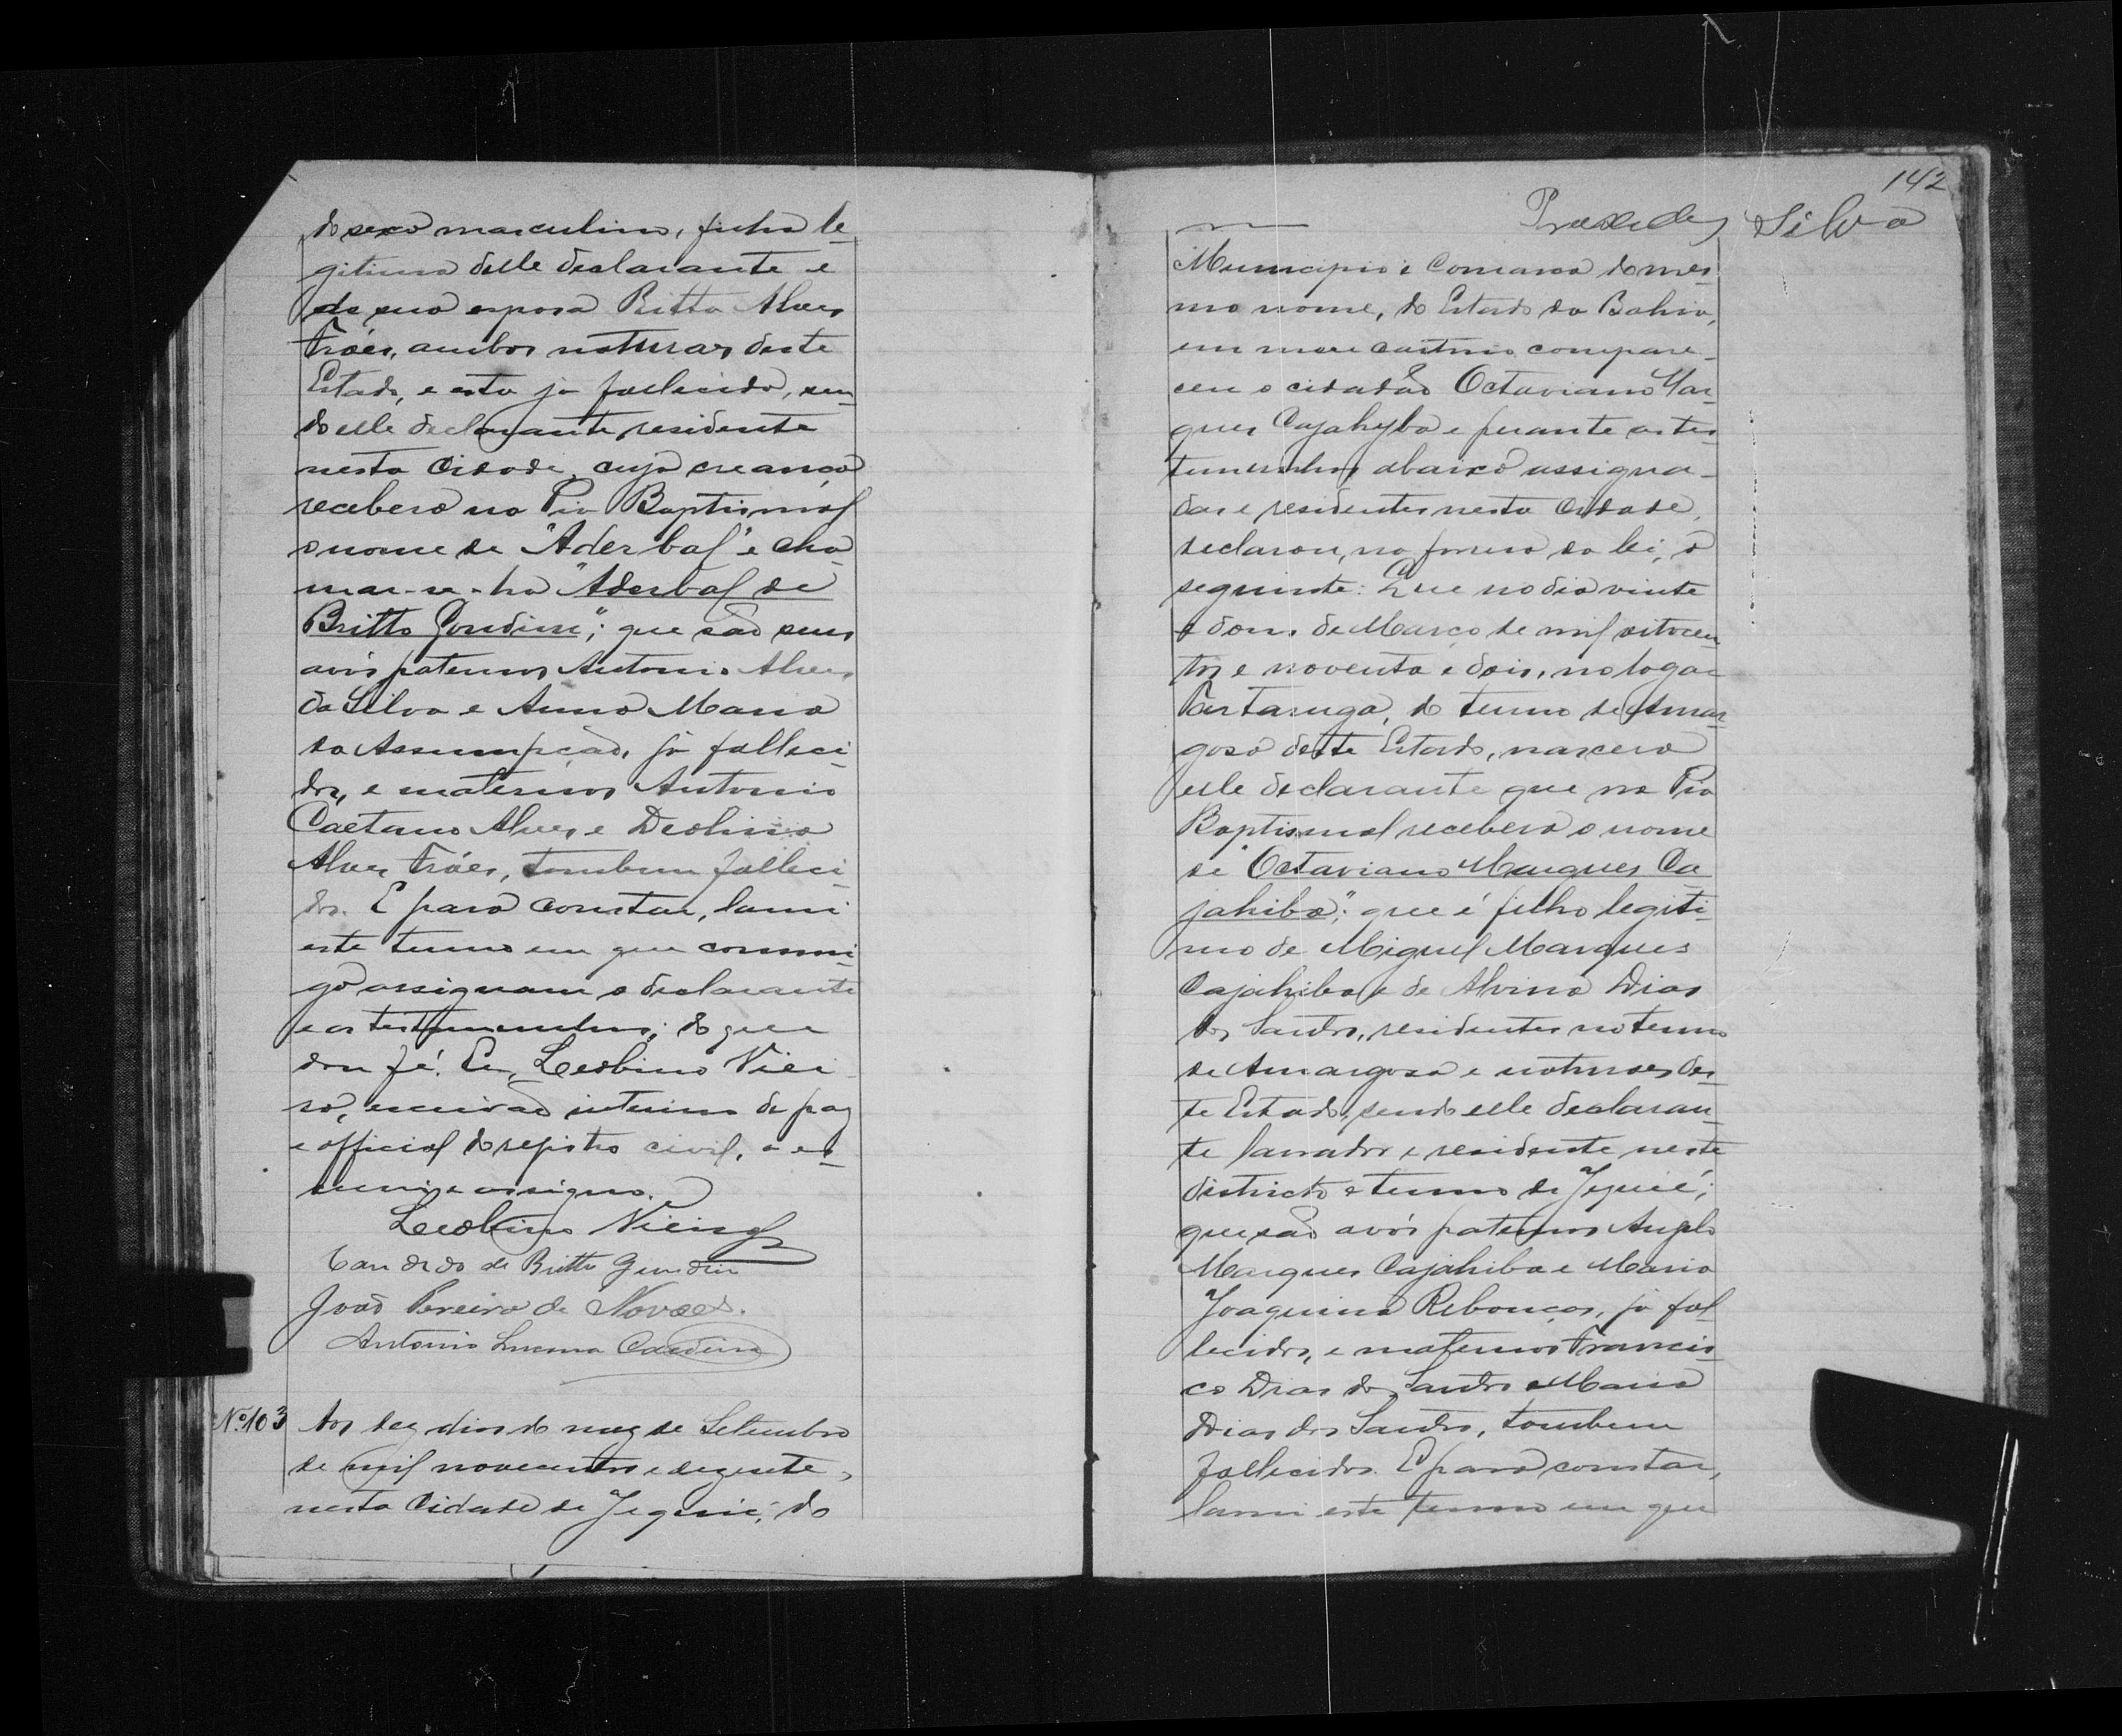 do sexo masculino, filho le-
gitimo delle declarante e
de sua esposa Britto Alves
Fróes, ambos naturaes deste
Estado, e esta já fallecida, sen-
do elle declarante residente
nesta Cidade, cuja creança
receberá na Pia Baptismal
o nome de "Aderbal" e cha-
mar-se-ha "Aderbal de
Britto Gondim"; que são seus
avós paternos Antonio Alves
da Silva e Anna Maria
da Assumpção, já falleci-
dos, e maternos Antonio
Caetano Alves e Deolina
Alves Fróes, tambem falleci-
dos. E para constar, lavrei
este termo em que commi-
go assignam o declarante
e as testemunhas; do que
dou fé. Eu, Leobino Viei-
ra, escrivão interino de paz
e official do registro civil, o es-
crevi e assigno.
Leobino Vieira
Candido de Britto Gondim
João Pereira de Novaes.
Antonio Lucena Cardim
Nº 103 Aos dez dias do mez de Setembro
de mil novecentos e dezesete,
nesta Cidade de Jequié, do
142
Praxedes Silva
Municipio e Comarca do mes-
mo nome, do Estado da Bahia,
em meu cartorio compare-
ceu o cidadão Octaviano Mar-
ques Cajahyba e perante as tes-
temunhas abaixo assigna-
das e residentes nesta Cidade,
declarou, na forma da lei, o
seguinte: Que no dia vinte
e dous de Março de mil oitocen-
tos e noventa e dois, no logar
Tartaruga, do termo de Amar-
gosa deste Estado, nascera
elle declarante que na Pia
Baptismal recebera o nome
de "Octaviano Marques Ca-
jahiba"; que é filho legiti-
mo de Miguel Marques
Cajahiba e de Alvina Dias
dos Santos, residentes no termo
de Amargosa e naturaes des-
te Estado, sendo elle declaran-
te lavrador e residente neste
districto e termo de Jequié;
que são avós paternos Angelo
Marques Cajahiba e Maria
Joaquina Rebouças, já fal-
lecidos, e maternos Francis-
co Dias dos Santos e Maria
Dias dos Santos, tambem
fallecidos. E para constar,
lavrei este termo em que